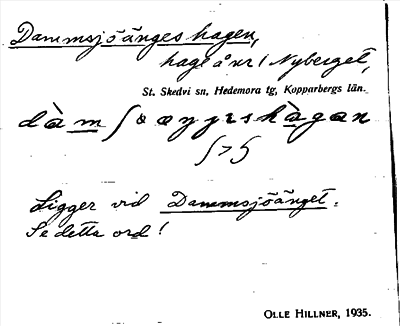 Dammsjöängeshagen,
hage å nr 1 Nyberget,
St. Skedvi sn, Hedemora tg, Kopparbergs län.
Ligger vid Dammsjöänget.
Se detta ord!
OLLE HILLNER, 1935.